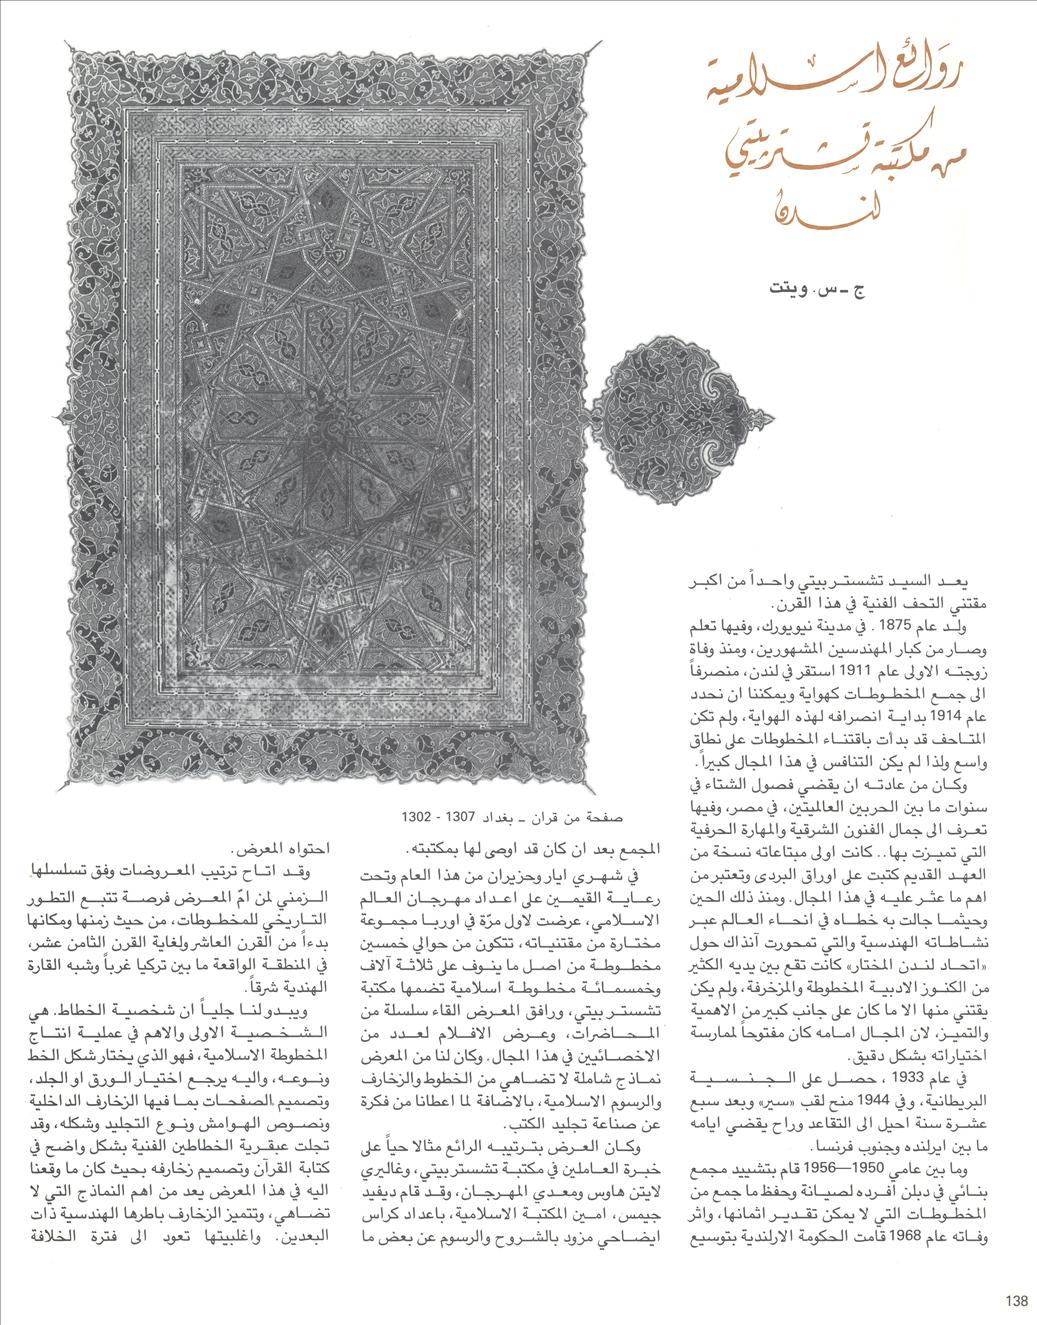 روائع اسلامية
من مكتبة تشستربيتي
لندن
ج - س. ويتت
يعد السيد تشستربيتي واحداً من اكبر
مقتني التحف الفنية في هذا القرن.
ولد عام 1875 . في مدينة نيويورك، وفيها تعلم
وصار من كبار المهندسين المشهورين، ومنذ وفاة
زوجته الاولى عام 1911 استقر في لندن، منصرفاً
الى جمع المخطوطات كهواية ويمكننا ان نحدد
عام 1914 بداية انصرافه لهذه الهواية، ولم تكن
المتاحف قد بدأت باقتناء المخطوطات على نطاق
واسع ولذا لم يكن التنافس في هذا المجال كبيراً.
وكان من عادته ان يقضي فصول الشتاء في
سنوات ما بين الحربين العالميتين، في مصر، وفيها
تعرف الى جمال الفنون الشرقية والمهارة الحرفية
التي تميزت بها.. كانت اولى مبتاعاته نسخة من
العهد القديم كتبت على اوراق البردى وتعتبر من
اهم ما عثر عليه في هذا المجال. ومنذ ذلك الحين
وحيثما جالت به خطاه في انحاء العالم عبر
نشاطاته الهندسية والتي تمحورت آنذاك حول
«اتحاد لندن المختار» كانت تقع بين يديه الكثير
من الكنوز الادبية المخطوطة والمزخرفة، ولم يكن
يقتني منها الا ما كان على جانب كبير من الاهمية
والتميز، لان المجال امامه كان مفتوحاً لممارسة
اختياراته بشكل دقيق.
في عام 1933 ، حصل على الجنسية
البريطانية، وفي 1944 منح لقب «سير» وبعد سبع
عشرة سنة احيل الى التقاعد وراح يقضي ايامه
ما بين ايرلنده وجنوب فرنسا.
وما بين عامي 1950—1956 قام بتشييد مجمع
بنائي في دبلن أفرده لصيانة وحفظ ما جمع من
المخطوطات التي لا يمكن تقدير اثمانها، واثر
وفاته عام 1968 قامت الحكومة الارلندية بتوسيع
صفحة من قران - بغداد 1307 - 1302
المجمع بعد ان كان قد اوصى لها بمكتبته.
في شهري ايار وحزيران من هذا العام وتحت
رعاية القيمين على اعداد مهرجان العالم
الاسلامي، عرضت لاول مرّة في اوربا مجموعة
مختارة من مقتنياته، تتكون من حوالي خمسين
مخطوطة من اصل ما ينوف على ثلاثة آلاف
وخمسمائة مخطوطة اسلامية تضمها مكتبة
تشستر بيتي، ورافق المعرض القاء سلسلة من
المحاضرات، وعرض الافلام لعدد من
الاخصائيين في هذا المجال. وكان لنا من المعرض
نماذج شاملة لا تضاهي من الخطوط والزخارف
والرسوم الاسلامية، بالاضافة لما اعطانا من فكرة
عن صناعة تجليد الكتب.
وكان العرض بترتيبه الرائع مثالا حياً على
خبرة العاملين في مكتبة تشستربيتي، وغاليري
لايتن هاوس ومعدي المهرجان، وقد قام ديفيد
جيمس، امين المكتبة الاسلامية، باعداد كراس
ايضاحي مزود بالشروح والرسوم عن بعض ما
احتواه المعرض.
وقد اتاح ترتيب المعروضات وفق تسلسلها
الزمني لمن امّ المعرض فرصة تتبع التطور
التاريخي للمخطوطات، من حيث زمنها ومكانها
بدءاً من القرن العاشر ولغاية القرن الثامن عشر،
في المنطقة الواقعة ما بين تركيا غرباً وشبه القارة
الهندية شرقاً.
ويبدو لنا جلياً ان شخصية الخطاط. هي
الشخصية الاولى والاهم في عملية انتاج
المخطوطة الاسلامية، فهو الذي يختار شكل الخط
ونوعه، واليه يرجع اختيار الورق او الجلد،
وتصميم الصفحات بما فيها الزخارف الداخلية
ونصوص الهوامش ونوع التجليد وشكله، وقد
تجلت عبقرية الخطاطين الفنية بشكل واضح في
كتابة القرآن وتصميم زخارفه بحيث كان ما وقعنا
اليه في هذا المعرض يعد من اهم النماذج التي لا
تضاهي، وتتميز الزخارف باطرها الهندسية ذات
البعدين. واغلبيتها تعود الى فترة الخلافة
138